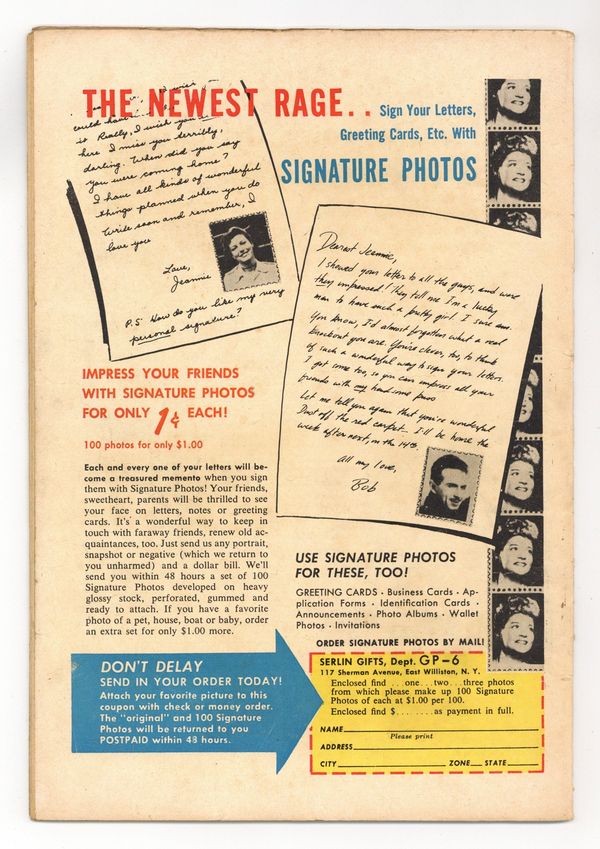 THE NEWEST RAGE..
Sign Your Letters,
Greeting Cards, Etc. With
SIGNATURE PHOTOS
I wish
could have
is Really, I wish you
here I miss you terribly,
darling. When did you say
you were coming home?
I have all kinds of wonderful
things planned when you do
Write soon and remember, I
love you
Love,
Jeannie
P.S. How do you like my very
personal signature?
Dearest Jeannie,
I showed your letter to all the guys, and were
they impressed! They tell me I'm a lucky
man to have such a pretty girl. I sure am.
You know, I'd almost forgotten what a real
knockout you are. You're clever, too, to think
of such a wonderful way to sign your letters.
I got some too, so you can impress all your
friends with my handsome puss
Let me tell you again that you're wonderful
Dust off the red carpet. I'll be home the
week after next, on the 14th.
All my love,
Bob
IMPRESS YOUR FRIENDS
WITH SIGNATURE PHOTOS
FOR ONLY 1¢ EACH!
100 photos for only $1.00
Each and every one of your letters will be-
come a treasured memento when you sign
them with Signature Photos! Your friends,
sweetheart, parents will be thrilled to see
your face on letters, notes or greeting
cards. It's a wonderful way to keep in
touch with faraway friends, renew old ac-
quaintances, too. Just send us any portrait,
snapshot or negative (which we return to
you unharmed) and a dollar bill. We'll
send you within 48 hours a set of 100
Signature Photos developed on heavy
glossy stock, perforated, gummed and
ready to attach. If you have a favorite
photo of a pet, house, boat or baby, order
an extra set for only $1.00 more.
USE SIGNATURE PHOTOS
FOR THESE, TOO!
GREETING CARDS · Business Cards · Ap-
plication Forms · Identification Cards ·
Announcements · Photo Albums · Wallet
Photos · Invitations
ORDER SIGNATURE PHOTOS BY MAIL!
DON'T DELAY
SEND IN YOUR ORDER TODAY!
Attach your favorite picture to this
coupon with check or money order.
The "original" and 100 Signature
Photos will be returned to you
POSTPAID within 48 hours.
SERLIN GIFTS, Dept. GP-6
117 Sherman Avenue, East Williston, N. Y.
Enclosed find . . one . . . two . . . three photos
from which please make up 100 Signature
Photos of each at $1.00 per 100.
Enclosed find $........as payment in full.
NAME
Please print
ADDRESS
CITY ZONE STATE